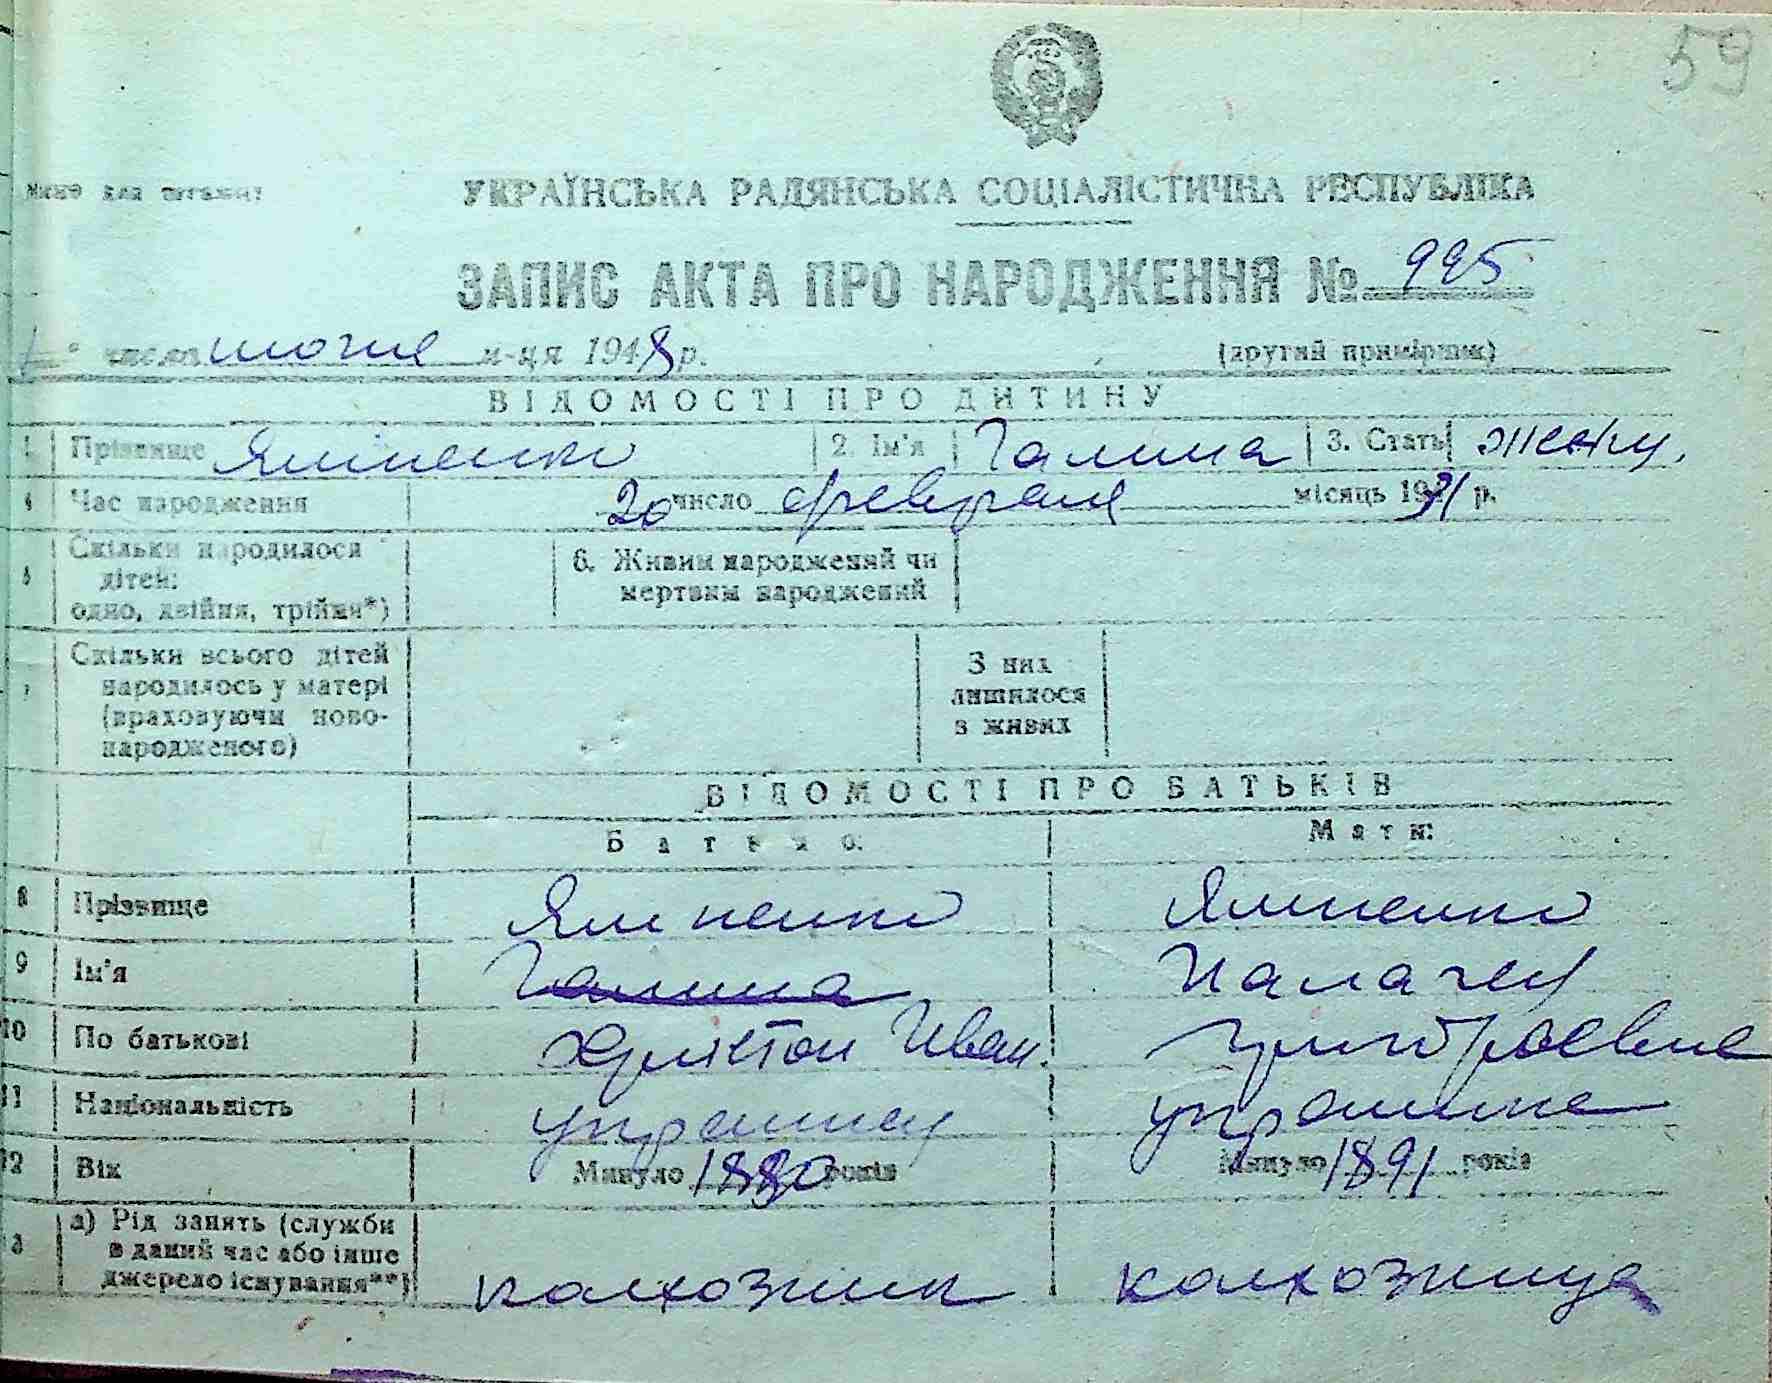 59
УКРАЇНСЬКА РАДЯНСЬКА СОЦІАЛІСТИЧНА РЕСПУБЛІКА
ЗАПИС АКТА ПРО НАРОДЖЕННЯ № 995
число июня м-ця 1948 р. (другий примірник)
ВІДОМОСТІ ПРО ДИТИНУ
1. Прізвище 2. Ім'я Галина 3. Стать женск.
4 Час народження 20 число февраля місяць 1931 р.
5 Скільки народилося дітей: одно, двійня, трійня*) 6. Живим народжений чи мертвим народжений
7 Скільки всього дітей народилось у матері (враховуючи новонародженого) З них лишилося в живих
ВІДОМОСТІ ПРО БАТЬКІВ
Батько: Мати:
8 Прізвище
9 Ім'я Галина
10 По батькові Иван. Григорьевна
11 Національність украинец украинка
12 Вік Минуло 1880 років Минуло 1891 років
13 а) Рід занять (служби в даний час або інше джерело існування**) колхозник колхозница